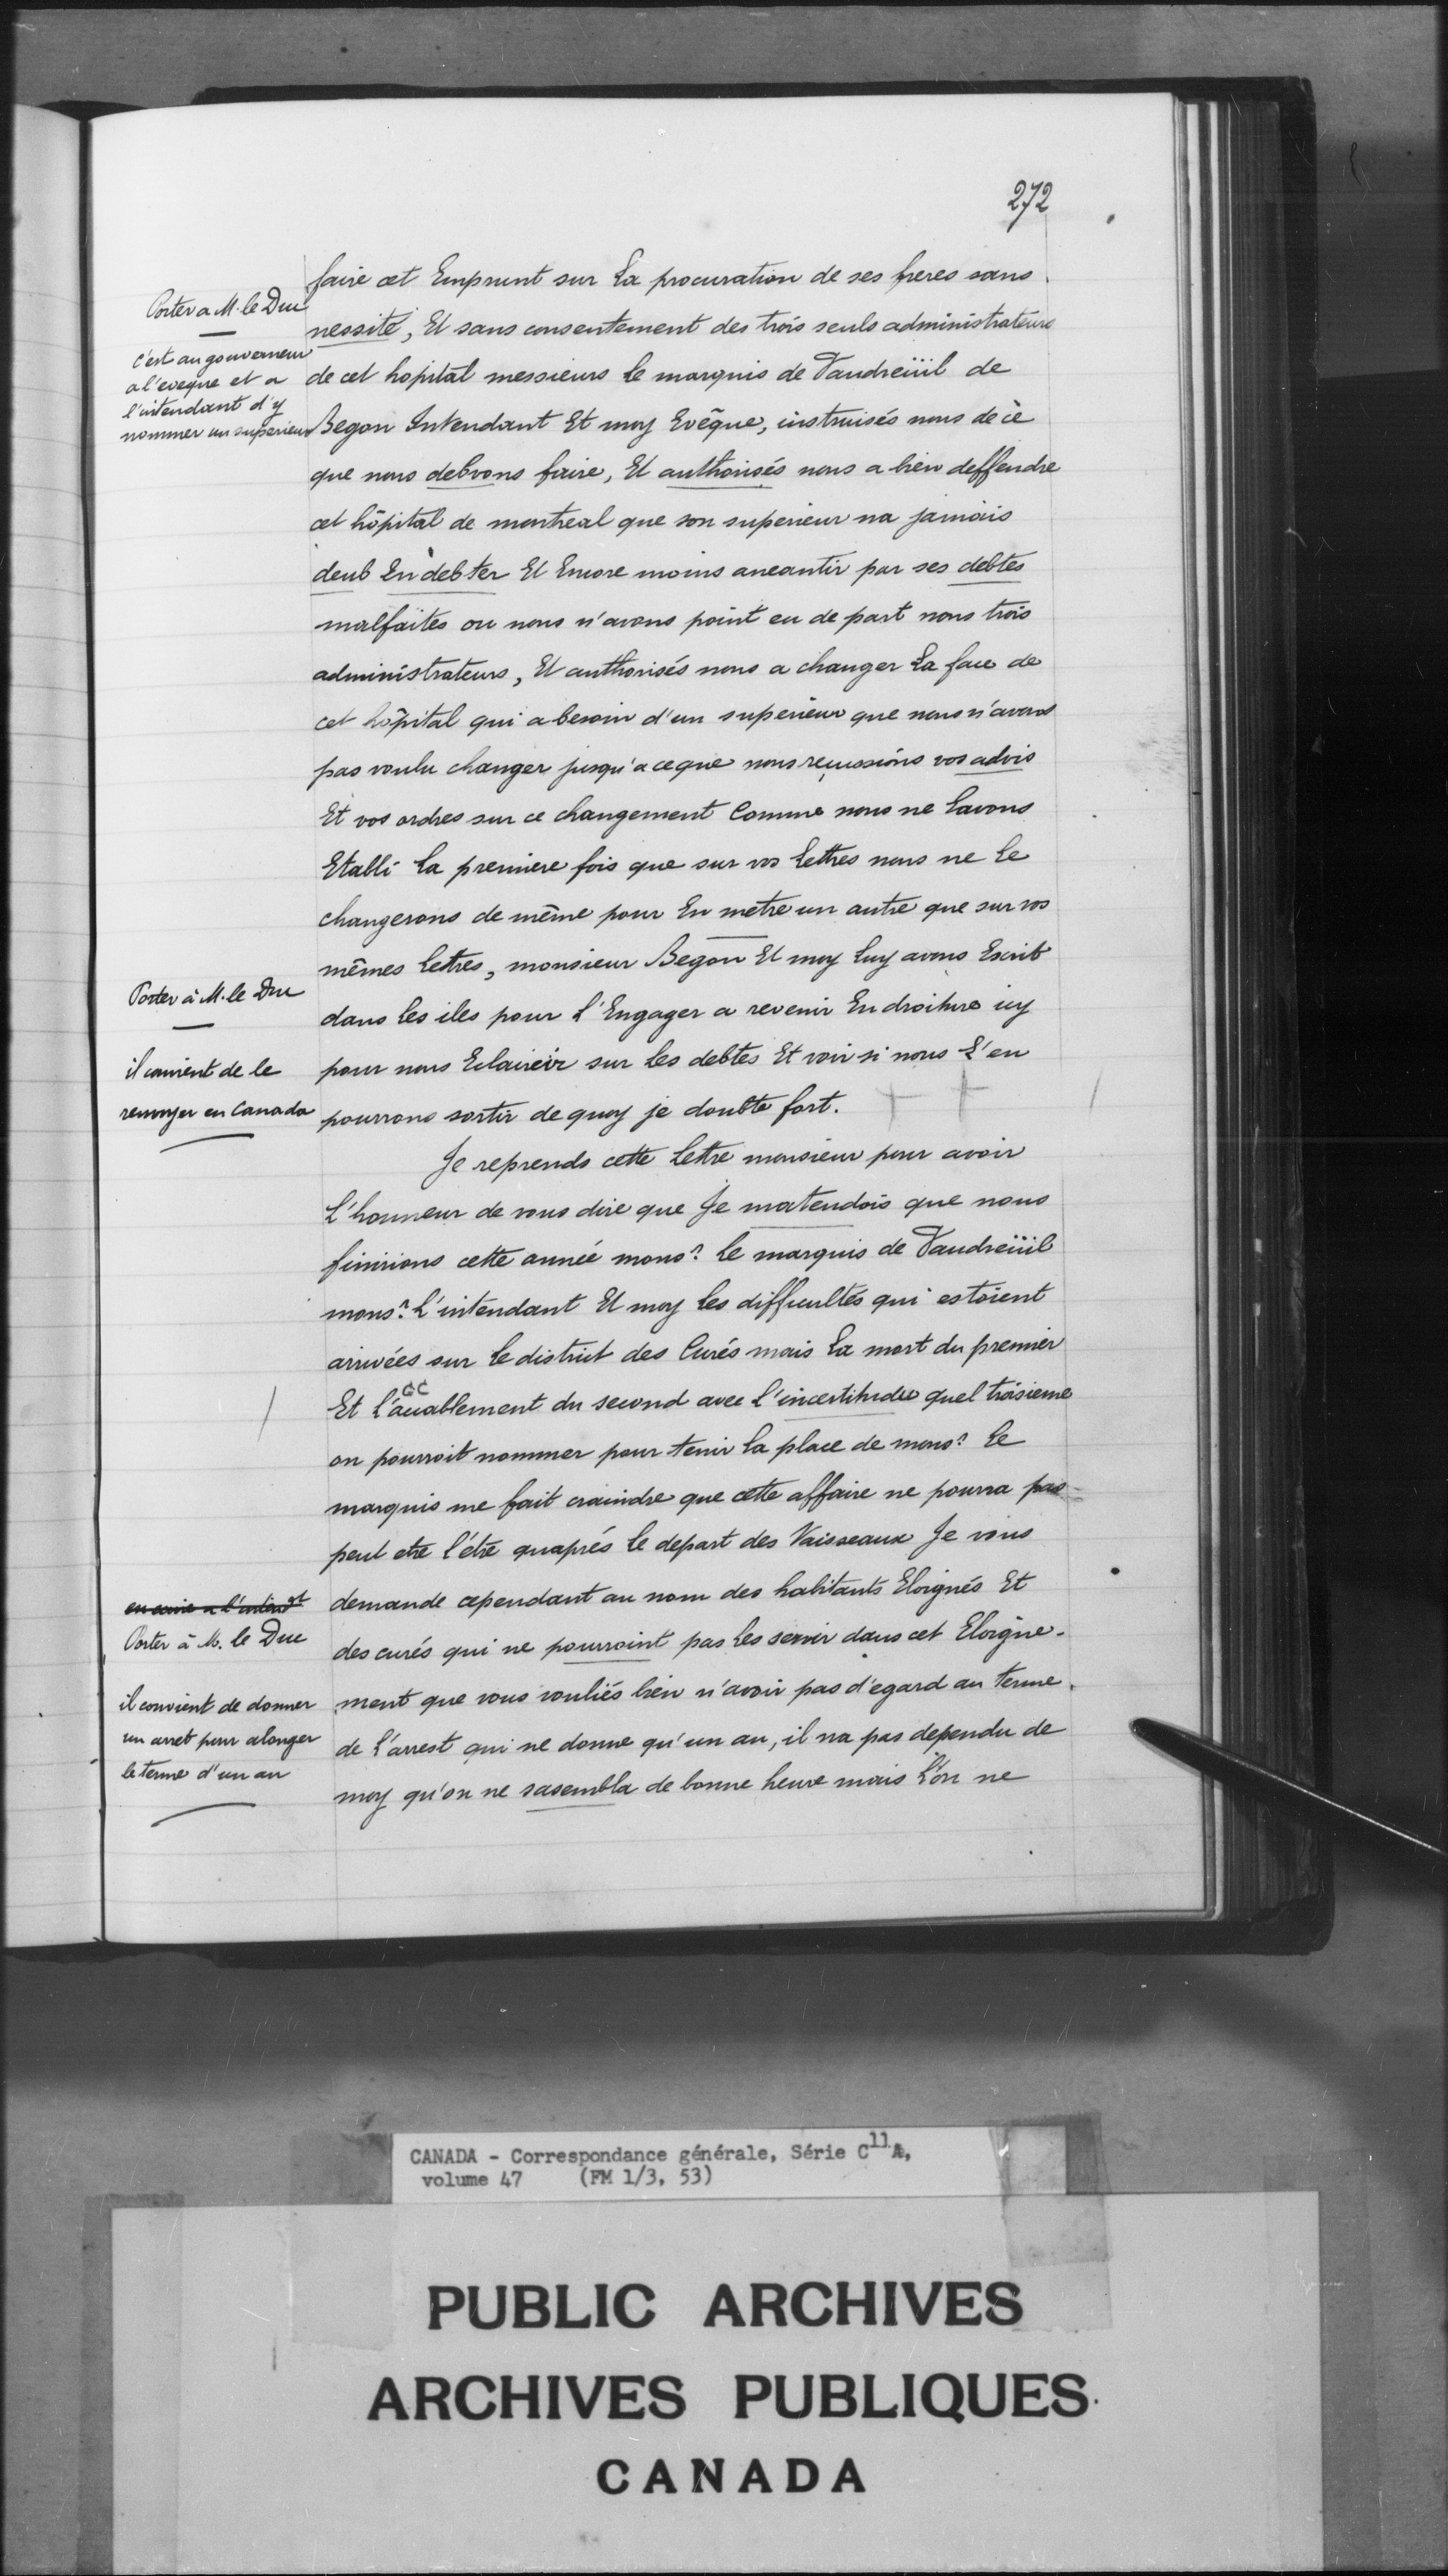 272
faire cet Emprunt sur La procuration de ses freres sans
Porter a M. le Duc
nessité, Et sans consentement des trois seuls administrateurs
c'est au gouverneur
a l'eveque et a
l'intendant d'y
nommer un superieur
de cet hopital messieurs Le marquis de Vaudreüil de
Begon Intendant Et moy Evêque, instruisés nous de ce
que nous debvons faire, Et authorisés nous a bien deffendre
cet hôpital de montreal que son superieur na jamais
deub Endebter Et Encore moins aneantir par ses debtes
malfaites ou nous n'avons point eu de part nous trois
administrateurs, Et authorisés nous a changer La face de
cet hôpital qui a besoin d'un superieur que nous n'avons
pas voulu changer jusqu'a ceque nous reçussions vos advis
Et vos ordres sur ce changement Comme nous ne Lavons
Etabli La premiere fois que sur vos Lettres nous ne Le
changerons de même pour En metre un autre que sur vos
mêmes Lettres, monsieur Begon Et moy Luy avons Escrit
Porter à M. le Duc
dans Les iles pour L'Engager a revenir En droiture icy
il convient de le
renvoyer en Canada
pour nous Eclaircir sur Les debtes Et voir si nous L'en
pourrons sortir de quoy je doubte fort.
Je reprends cette Lettre monsieur pour avoir
L'honneur de vous dire que Je matendois que nous
finirions cette année monsr Le marquis de Vaudreüil
monsr L'intendant Et moy Les difficultés qui estoient
arrivées sur Le district des Curés mais La mort du premier
cc
Et L'acablement du second avec L'incertitudee quel troisieme
on pourroit nommer pour tenir La place de monsr Le
marquis me fait craindre que cette affaire ne pourra pas
peut etre L'étre quaprés Le depart des Vaisseaux Je vous
demande cependant au nom des habitants Eloignés Et
en ecrire a l'intendt
Porter à M. le Duc
des curés qui ne pourroint pas Les servir dans cet Eloigne-
il convient de donner
un arret pour alonger
le terme d'un an
ment que vous vouliés bien n'avoir pas d'egard au terme
de L'arrest qui ne donne qu'un an, il na pas dependu de
moy qu'on ne sasembla de bonne heure mais L'on ne
CANADA - Correspondance générale, Série C11 A,
volume 47 (FM 1/3, 53)
PUBLIC ARCHIVES
ARCHIVES PUBLIQUES
CANADA